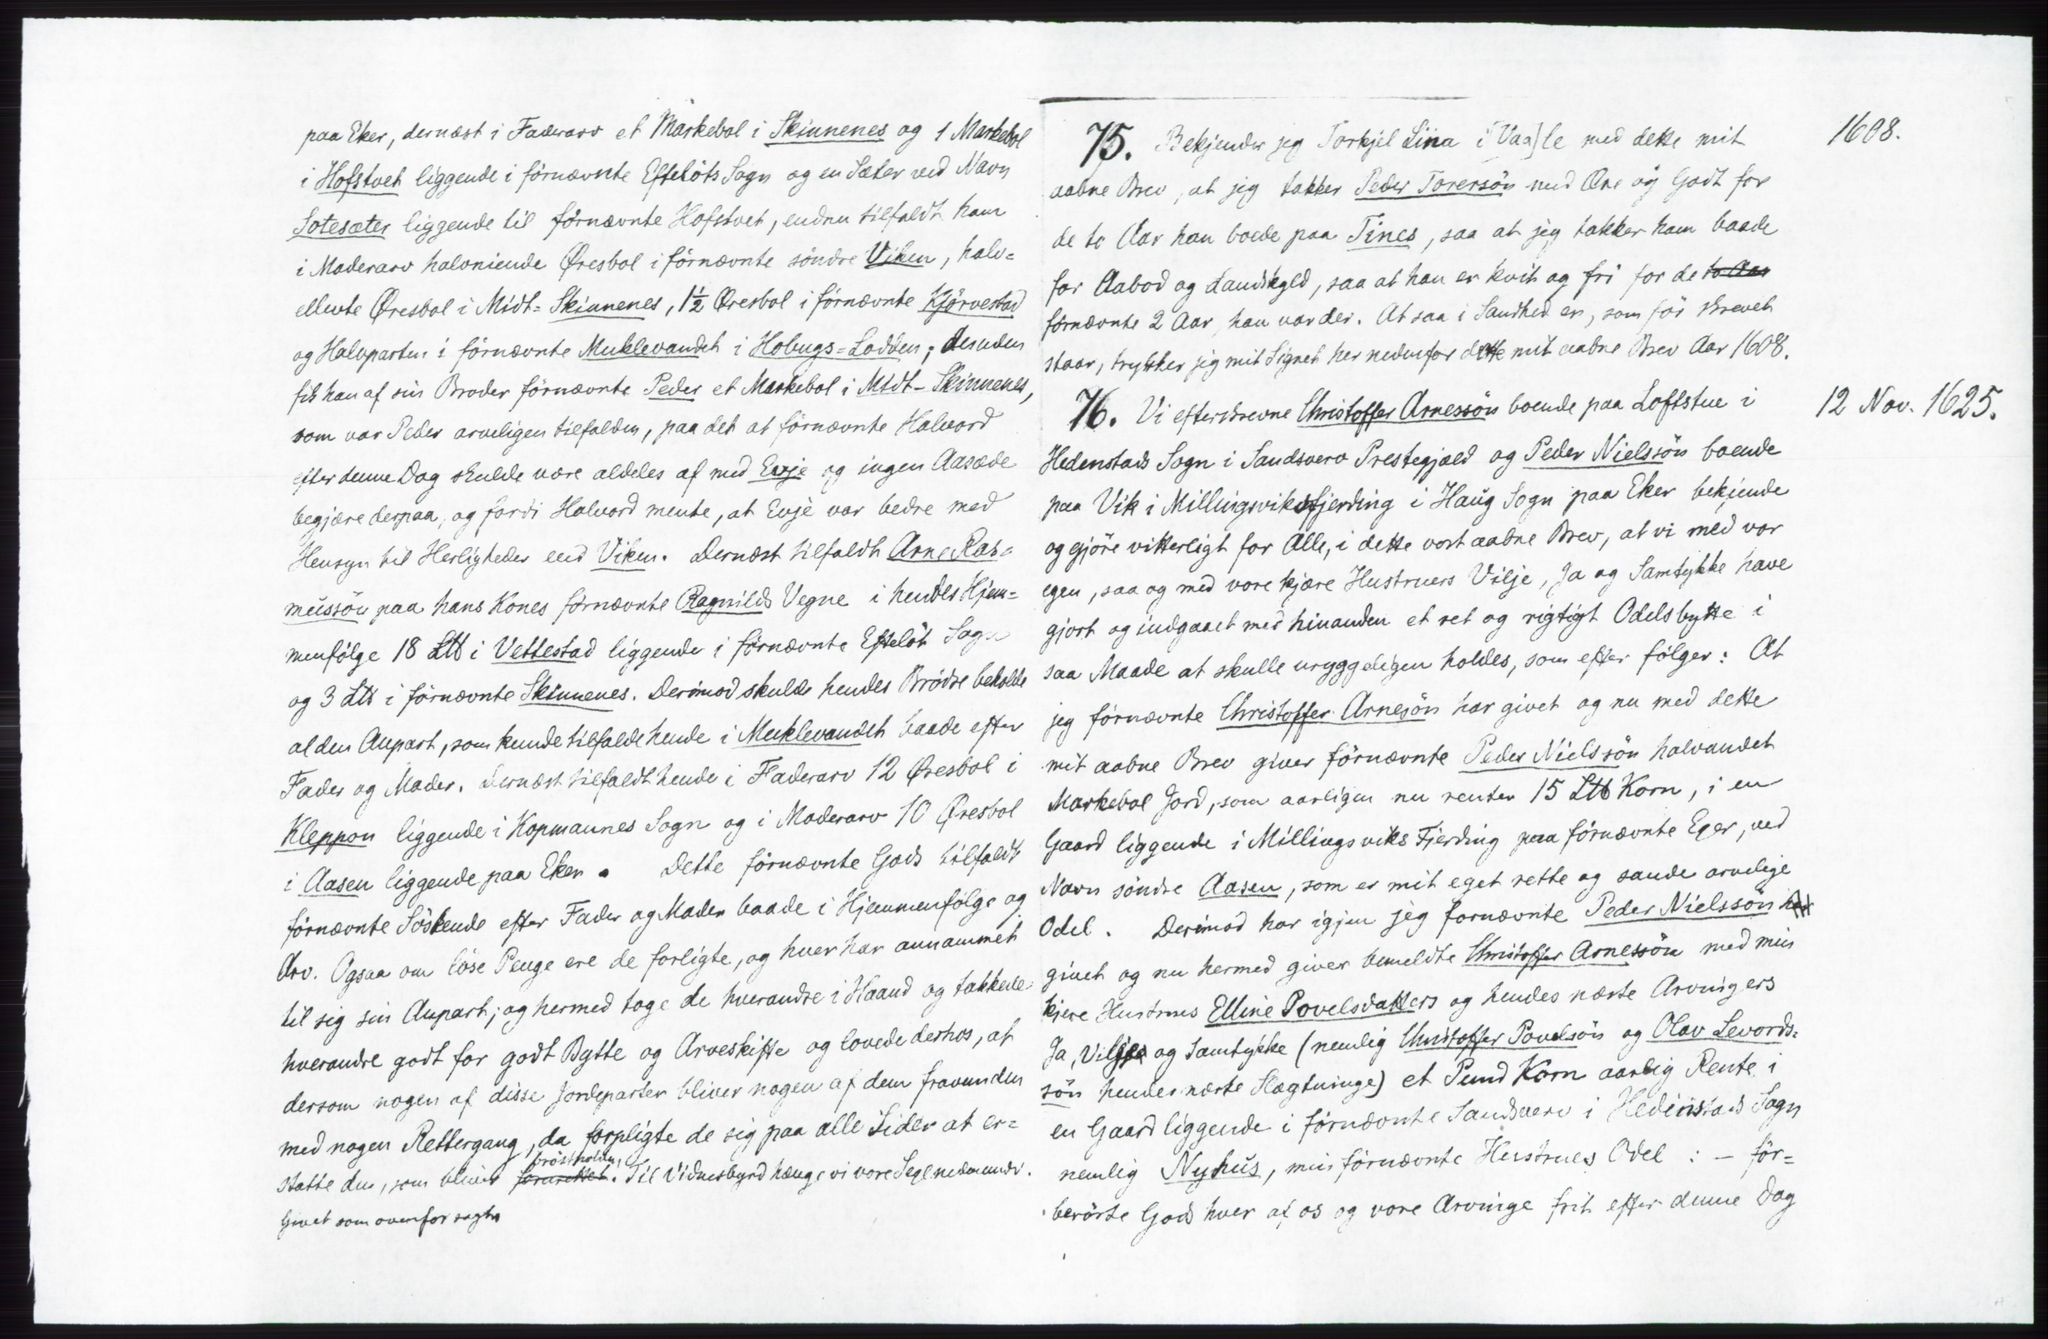 paa Eker, dernæst i Faderarv et Markebol i Skinnenes og 1 Markebol
i Hofstvet liggende i förnævnte Eftelöts Sogn og en Sæter ved Navn
Sotesæter liggende til förnævnte Hofstvet, endnu tilfaldt ham
i Moderarv halvniende Øresbol i förnævnte söndre Viken, halv-
ellevte Øresbol i Midt-Skinnenes, 1½ Øresbol i förnævnte Kjörvestad
og Halvparten i förnævnte Muklevandet i Hobugs-Lodden; desuden
fik han af sin Broder förnævnte Peder et Markebol i Midt-Skinnenes,
som var Peder arveligen tilfalden, paa det at förnævnte Halvord
efter denne Dag skulde være aldeles af med Evje og ingen Aasæde
begjære derpaa, og fordi Halvord mente, at Evje var bedre med
Hensyn til Herligheder end Viken. Dernæst tilfaldt Arne Ras-
mussön paa hans Kones förnævnte Ragnilds Vegne i hendes Hjem-
menfölge 18 Ltb i Vettestad liggende i förnævnte Eftelöt Sogn
og 3 Ltb i förnævnte Skinnenes. Derimod skulde hendes Brödre beholde
al den Anpart, som kunde tilfalde hende i Muklevandet baade efter
Fader og Moder. Dernæst tilfaldt hende i Faderarv 12 Øresbol i
Kleppon liggende i Kopmannes Sogn og i Moderarv 10 Øresbol
i Aasen liggende paa Eker. Dette förnævnte Gods tilfaldt
förnævnte Söskende efter Fader og Moder baade i Hjemmenfölge og
Arv. Ogsaa om löse Penge ere de forligte, og hver har annammet
til sig sin Anpart; og hermed toge de hverandre i Haand og takkede
hverandre godt for godt Bytte og Arveskifte og lovede derhos, at
dersom nogen af disse Jordeparter bliver nogen af dem fravunden
med nogen Rettergang, da forpligte de sig paa alle Sider at er-
bröstholden,
statte den, som bliver forurettet. Til Vidnesbyrd hænge vi vore Segl nedenunder.
Givet som ovenfor sagt.
75. Bekjender jeg Torkjel Lina i [Vaa]le med dette mit
1608.
aabne Brev, at jeg takker Peder Torersön med Ære og Godt for
de to Aar han boede paa Tines, saa at jeg takker ham baade
for Aabod og Landskyld, saa at han er kvit og fri for de to Aar
förnævnte 2 Aar, han var der. At saa i Sandhed er, som för skrevet
staar, trykker jeg mit Signet her nedenfor dette mit aabne Brev Aar 1608.
76. Vi efterskrevne Christoffer Arnessön boende paa Loftstue i
12 Nov. 1625.
Hedenstads Sogn i Sandsverv Prestegjæld og Peder Nielssön boende
paa Vik i Millingsviks fjerding i Haug Sogn paa Eker bekjende
og gjöre vitterligt for Alle, i dette vort aabne Brev, at vi med vor
egen, saa og med vore kjære Hustruers Vilje, Ja og Samtykke have
gjort og indgaaet med hinanden et ret og rigtigt Odelsbytte i
saa Maade at skulle uryggeligen holdes, som efter fölger: At
jeg förnævnte Christoffer Arnesön har givet og nu med dette
mit aabne Brev giver förnævnte Peder Nielssön halvandet
Markebol Jord, som aarligen nu renter 15 Ltb Korn, i en
Gaard liggende i Millingsviks Fjerding paa förnævnte Eger, ved
Navn söndre Aasen, som er mit eget rette og sande arvelige
Odel. Derimod har igjen jeg fornævnte Peder Nielssön
givet og nu hermed giver bemeldte Christoffer Arnessön med min
kjere Hustrues Elline Povelsdatters og hendes nærste Arvingers
Ja, Vilje og Samtykke (nemlig Christoffer Povelsön og Olav Levords-
sön hendes nærste Slægtninge) et Pund Korn aarlig Rente i
en Gaard liggende i förnævnte Sandsverv i Hedenstads Sogn
nemlig Nyhus, min förnævnte Hustrues Odel : — för-
berörte Gods hver af os og vore Arvinge frit efter denne Dag